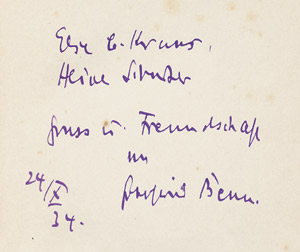 Else C. Kraus,
Heinz Schröter
Gruss u. Freundschaft
von
24/X 34. Gottfried Benn.